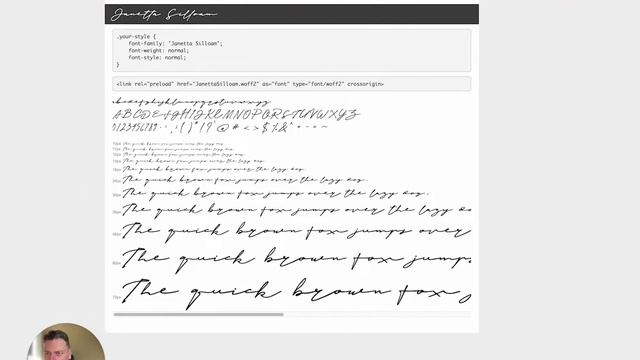 Janetta Silloam
.your-style {
font-family: 'Janetta Silloam';
font-weight: normal;
font-style: normal;
}
<link rel="preload" href="JanettaSilloam.woff2" as="font" type="font/woff2" crossorigin>
abcdefghijklmnopqrstuvwxyz
ABCDEFGHIJKLMNOPQRSTUVWXYZ
The quick brown fox jumps over the lazy dog.
The quick brown fox jumps over the lazy dog.
The quick brown fox jumps over the lazy dog.
The quick brown fox jumps over the lazy dog.
The quick brown fox jumps over the lazy dog.
The quick brown fox jumps over the lazy dog.
The quick brown fox jumps over the lazy dog.
The quick brown fox jumps over the lazy do
The quick brown fox jumps over
The quick brown fox jump
72px The quick brown fox